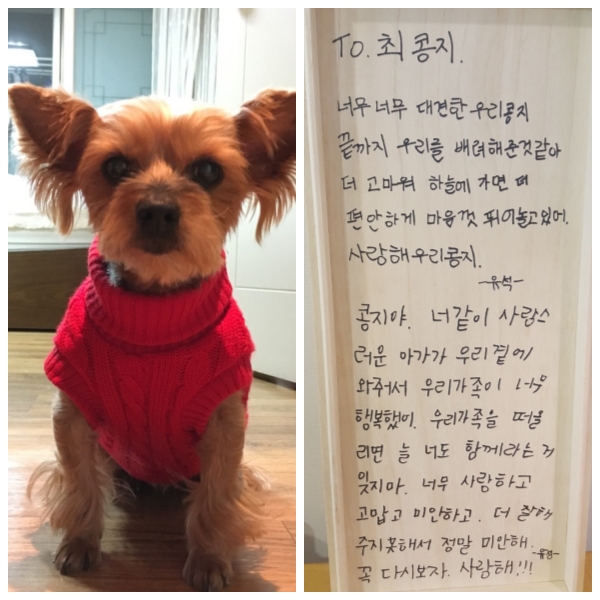 To. 최콩지.
너무 너무 대견한 우리콩지
끝까지 우리를 배려해준것같아
더 고마워 하늘에 가면 더
편안하게 마음껏 뛰어놀고있어.
사랑해 우리콩지.
-유석-
콩지야. 너같이 사랑스
러운 아가가 우리곁에
와주어서 우리가족이 너무
행복했어. 우리가족을 떠올
리면 늘 너도 함께라는 거
잊지마. 너무 사랑하고
고맙고 미안하고. 더 잘해
주지못해서 정말 미안해.
-유정-
꼭 다시보자. 사랑해!!!